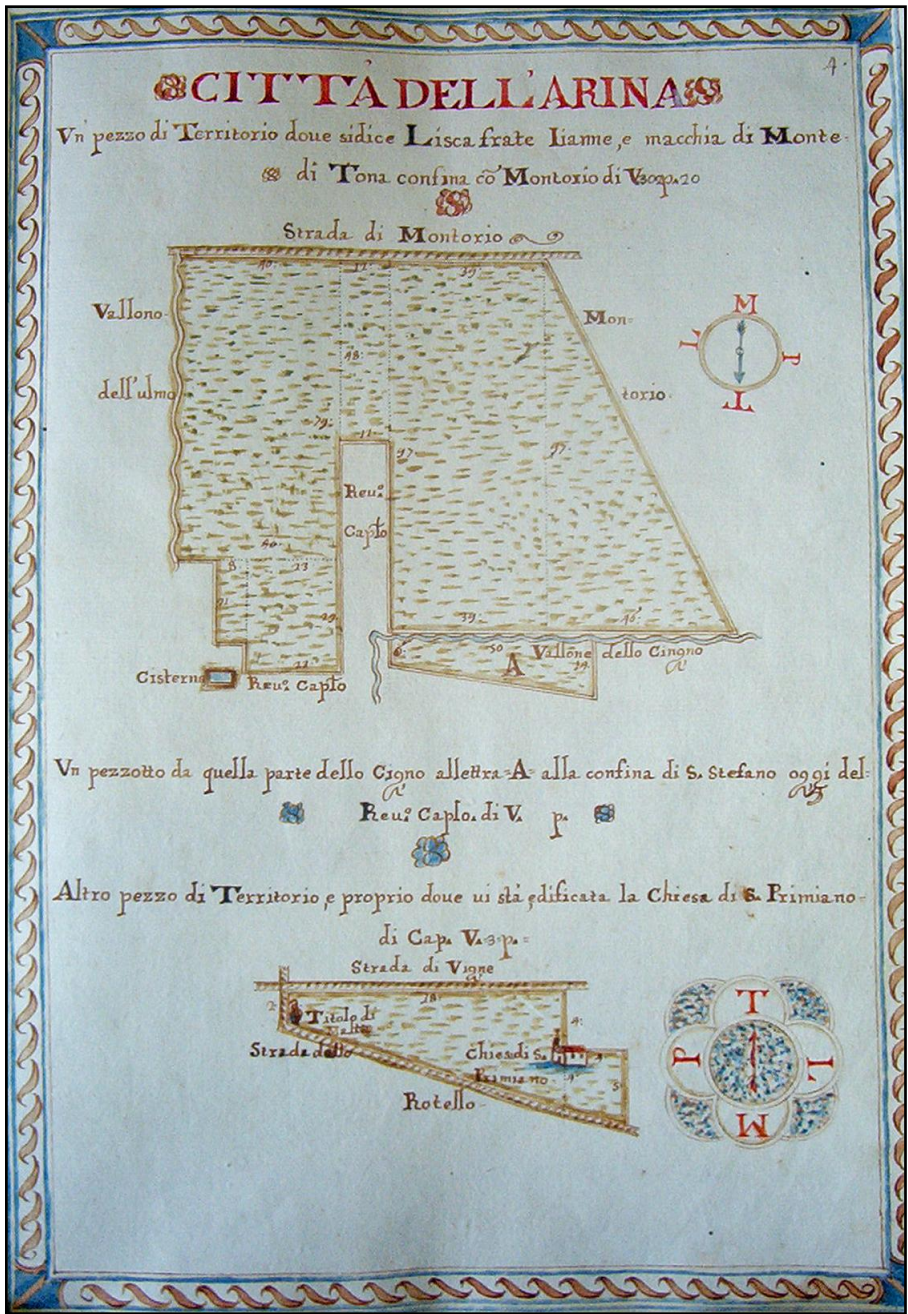 4.
CITTÀ DELL'ARINA
Vn' pezzo di Territorio doue si dice Lisca frate Iianne, e macchia di Monte-
di Tona confina cō Montorio di V. 302 p. 20
Strada di Montorio
40. 11. 39.
Vallono
Mon=
M
L P
T
48.
dell'ulmo
torio.
79.
11.
97. 97.
Reu.º
Capło
40.
8. 23
21 29
39. 46.
50 Vallone dello Cingno
A
Cisterna
Reu.º Capło
Vn pezzotto da quella parte dello Cigno allettra=A= alla confina di S. Stefano oggi del=
Reu.º Capło. di V. p.
Altro pezzo di Territorio, e proprio doue ui stà edificata la Chiesa di S. Primiano-
di Cap. V.=3=p.=
Strada di Vigne
18.
2.
Titolo di
Malta
4.
T
Strada dello
Chiesa di S.
P L
Primiano
5
Rotello
M